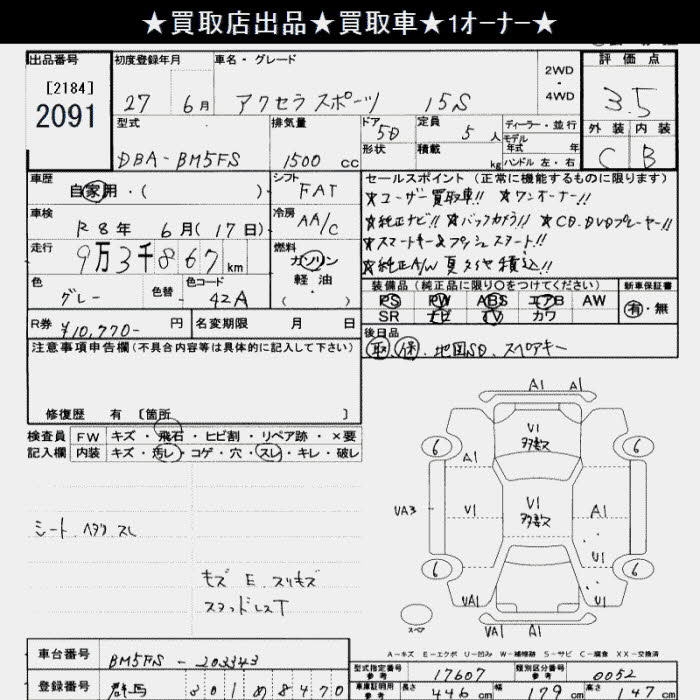 ★買取店出品★買取車★1オーナー★
出品番号 初度登録年月 車名・グレード 2WD・4WD 評価点
[2184]
2091
27 6月 アクセラスポーツ 15S 3.5
型式 排気量 ドア 5D 定員 5人 ディーラー・並行 外装 内装
DBA-BM5FS 1500cc 形状 積載 kg モデル年式 年 ハンドル 左・右 C B
車歴 自家用・( ) シフト FAT
セールスポイント(正常に機能するものに限ります)
★ユーザー買取車!! ★ワンオーナー!!
車検 R8年 6月(17日) 冷房 AA/C
★純正ナビ!! ★バックカメラ!! ★CD.DVDプレーヤー!!
★スマートキー&プッシュスタート!!
走行 9万3千867km 燃料 ガソリン 軽油・( )
★純正A/W 夏タイヤ積込!!
色 グレー 色替 色コード 42A
装備品(純正品に限り○をつけてください) 新車保証書
PS PW ABS エアB AW 有・無
SR ナビ TV カワ
R券 ¥10,770-円 名変期限 月 日
後日品
取、保、地図SD、スペアキー
注意事項申告欄(不具合内容等は具体的に記入して下さい)
修復歴 有 [箇所 ]
検査員記入欄 FW キズ・飛石・ヒビ割・リペア跡・×要
内装 キズ・汚レ・コゲ・穴・スレ・キレ・破レ
シート ヘタリ スレ
モズ E スリキズ
スタッドレスT
A1 A1
V1 多数
6 6
A1
VA3 V1 V1 多数 A1
V1
6 6
VA1 U1
スペア VA1 A1
A-キズ E-エクボ U-凹み W-補修跡 S-サビ C-腐食 XX-交換済
車台番号 BM5FS-203343
型式指定番号 参考 17607 類別区分番号 参考 0052
登録番号 群馬 301 め 8470
車庫証明用 参考 長さ 446cm 幅 179cm 高さ 147cm